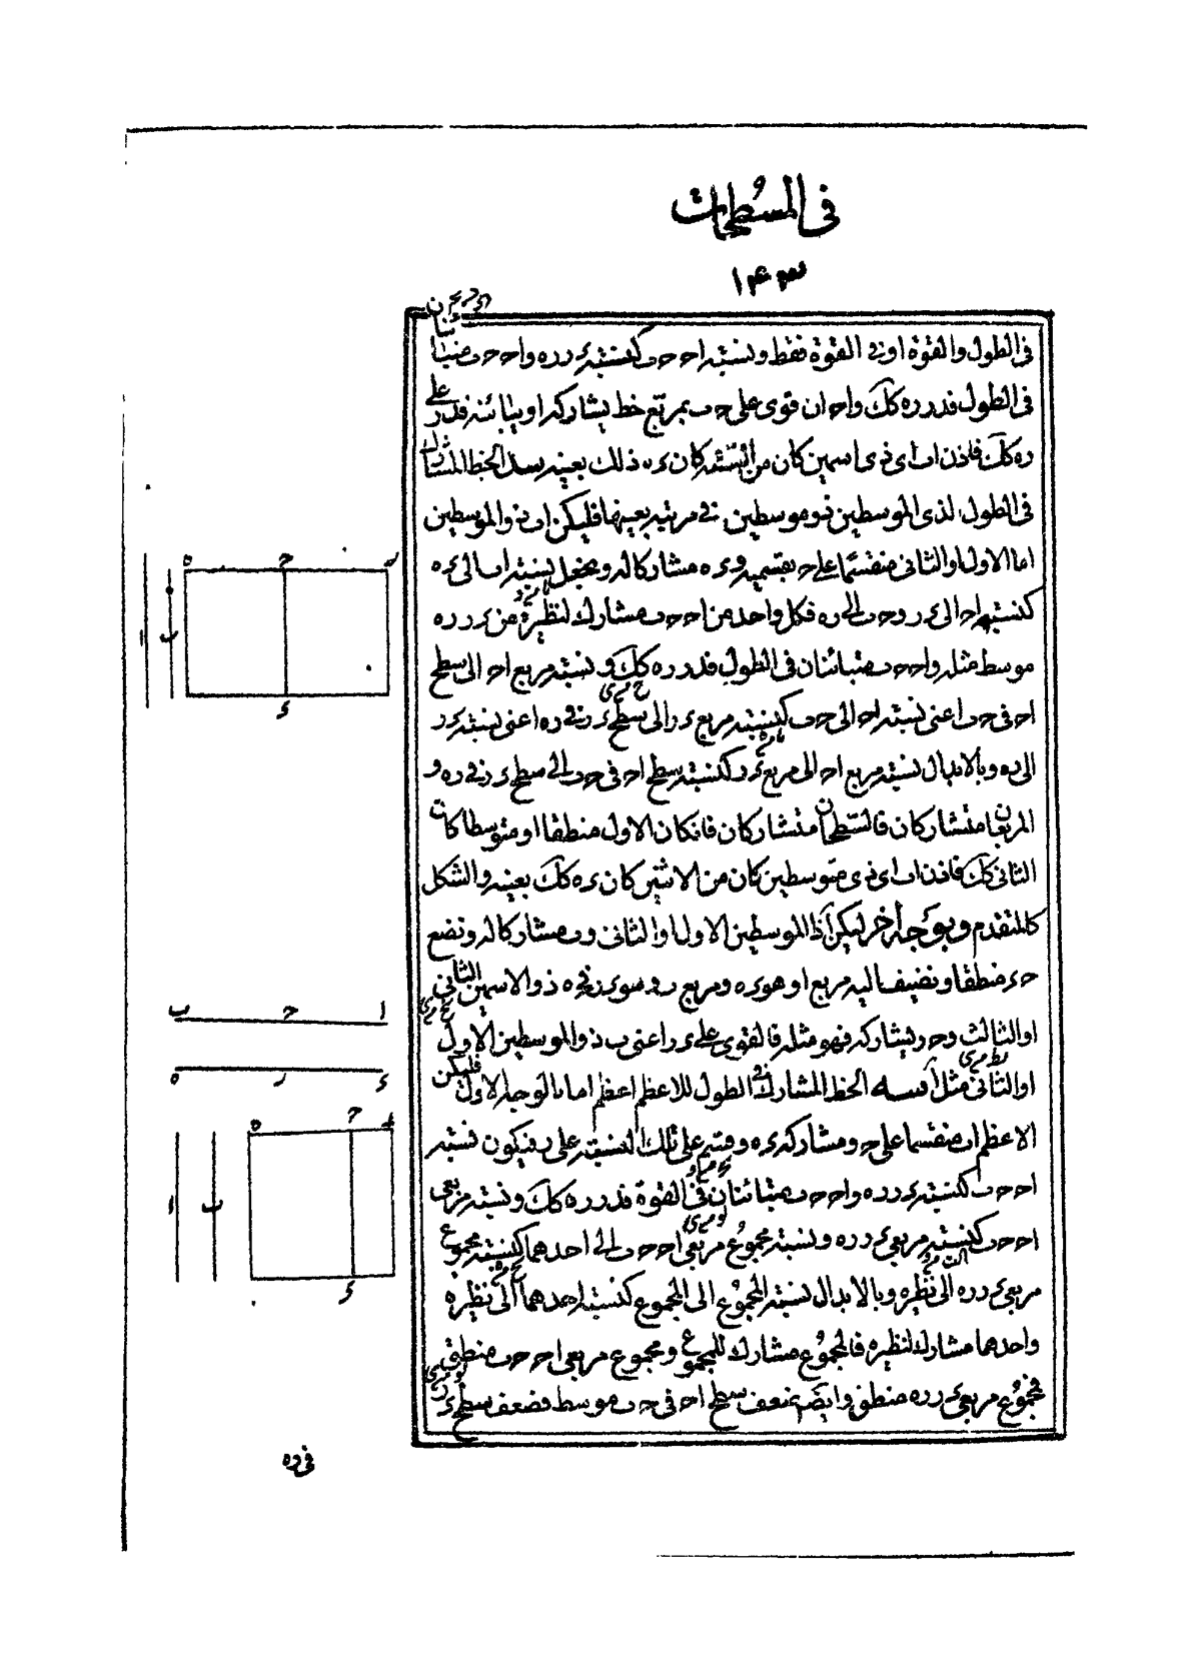 فى المسطحات
١٤٣
فى الطول والقوة او فى القوة فقط ونسبة احـ حـب كنسبة ءر ره واحـ حـب متباينان
فى الطول فدر ره كك واحـ ان قوى على حـب بمربع خط يشاركه او يباينه فدر على
ره كك فاذن اب اى ذى اسمين كان من الستة كان ءه ذلك بعينه الخط المشارك
فى الطول لذى الموسطين ذو موسطين فى مرتبة بعينها فليكن اب ذو الموسطين
اما الاول او الثانى منقسما على حـ بقسميه وءه مشاركا له ونجعل نسبة اب الى ءه
كنسبة احـ الى ءر وحـب الى ره فكل واحد من احـ حـب مشارك لنظيره من ءر ره
موسط مثله واحـ حـب متباينان فى الطول فدر ره كك ونسبة مربع احـ الى سطح
احـ فى حـب اعنى نسبة احـ الى حـب كنسبة مربع ءر الى سطح ءر فى ره اعنى نسبة ءر
الى ره وبالابدال نسبة مربع احـ الى مربع ءر كنسبة سطح احـ فى حـب الى سطح ءر فى ره و
المربعان متشاركان فالسطحان متشاركان فان كان الاول منطقا او متوسطا كان
الثانى كك فاذن اب اى ذى متوسطين كان من الاثنين كان ءه كك بعينه والشكل
كالمتقدم وبوجه آخر ليكن ا ذا الموسطين الاول او الثانى وب مشاركا له ونضع
حـء منطقا ونضيف اليه مربع ا وهو ءه ومربع ب وهو ءر فحـه ذو الاسمين الثانى
او الثالث وحـر يشاركه فهو مثله فالقوى على ءر اعنى ب ذو الموسطين الاول
او الثانى مثل ا الخط المشارك فى الطول للاعظم اعظم اما بالوجه الاول فليكن
الاعظم اب منقسما على حـ ومشاركه ءه وقسم على تلك النسبة على ر فيكون نسبة
احـ حـب كنسبة ءر ره واحـ حـب متباينان فى القوة فدر ره كك ونسبة مربعى
احـ حـب كنسبة مربعى ءر ره ونسبة مجموع مربعى احـ حـب الى احدهما كنسبة مجموع
مربعى ءر ره الى نظيره وبالابدال نسبة المجموع الى المجموع كنسبة احدهما الى نظيره
واحدهما مشارك لنظيره فالمجموع مشارك للمجموع ومجموع مربعى احـ حـب منطق
فمجموع مربعى ءر ره منطق وايضا ضعف سطح احـ فى حـب موسط فضعف سطح ءر
فى ره
ه حـ ر
ا ب
ء
ا حـ ب
ء ر ه
ه حـ ر
ا ب
ء